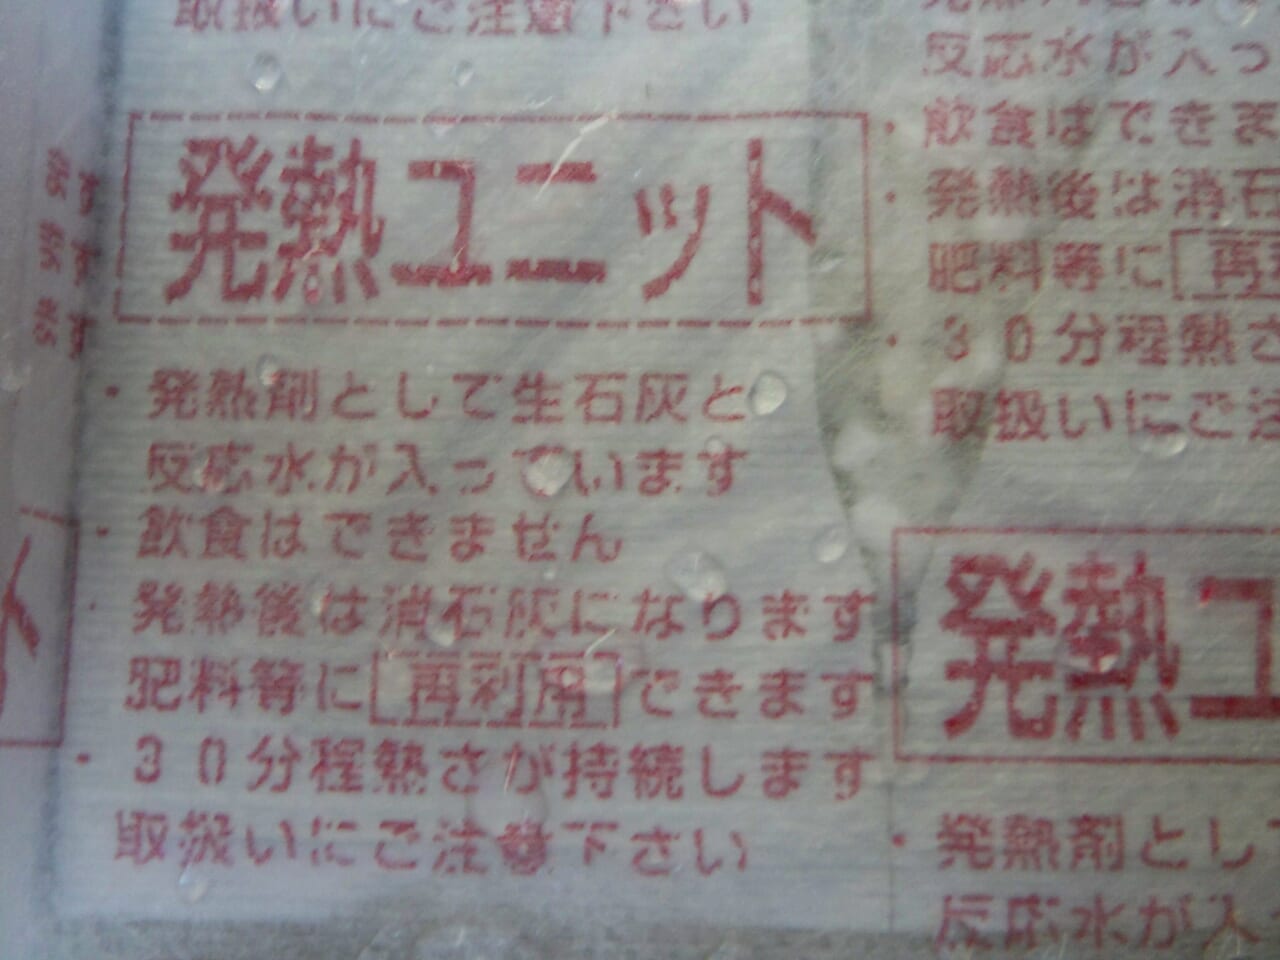 取扱いにご注意下さい
発熱ユニット
・発熱剤として生石灰と
反応水が入っています
・飲食はできません
・発熱後は消石灰になります
肥料等に再利用できます
・30分程熱さが持続します
取扱いにご注意下さい
反応水が入っ
・飲食はできま
・発熱後は消石
肥料等に再利
・30分程熱さ
取扱いにご注
発熱ユ
・発熱剤とし
反応水が入